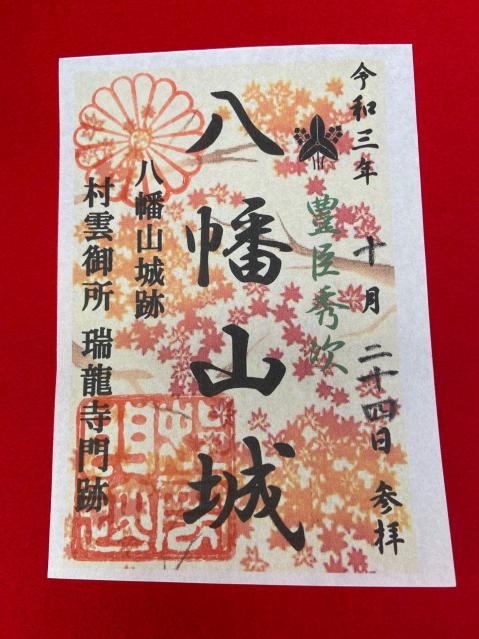 令和三年 十月 二十四日 参拝
豊臣秀次
八幡山城
八幡山城跡
村雲御所 瑞龍寺門跡